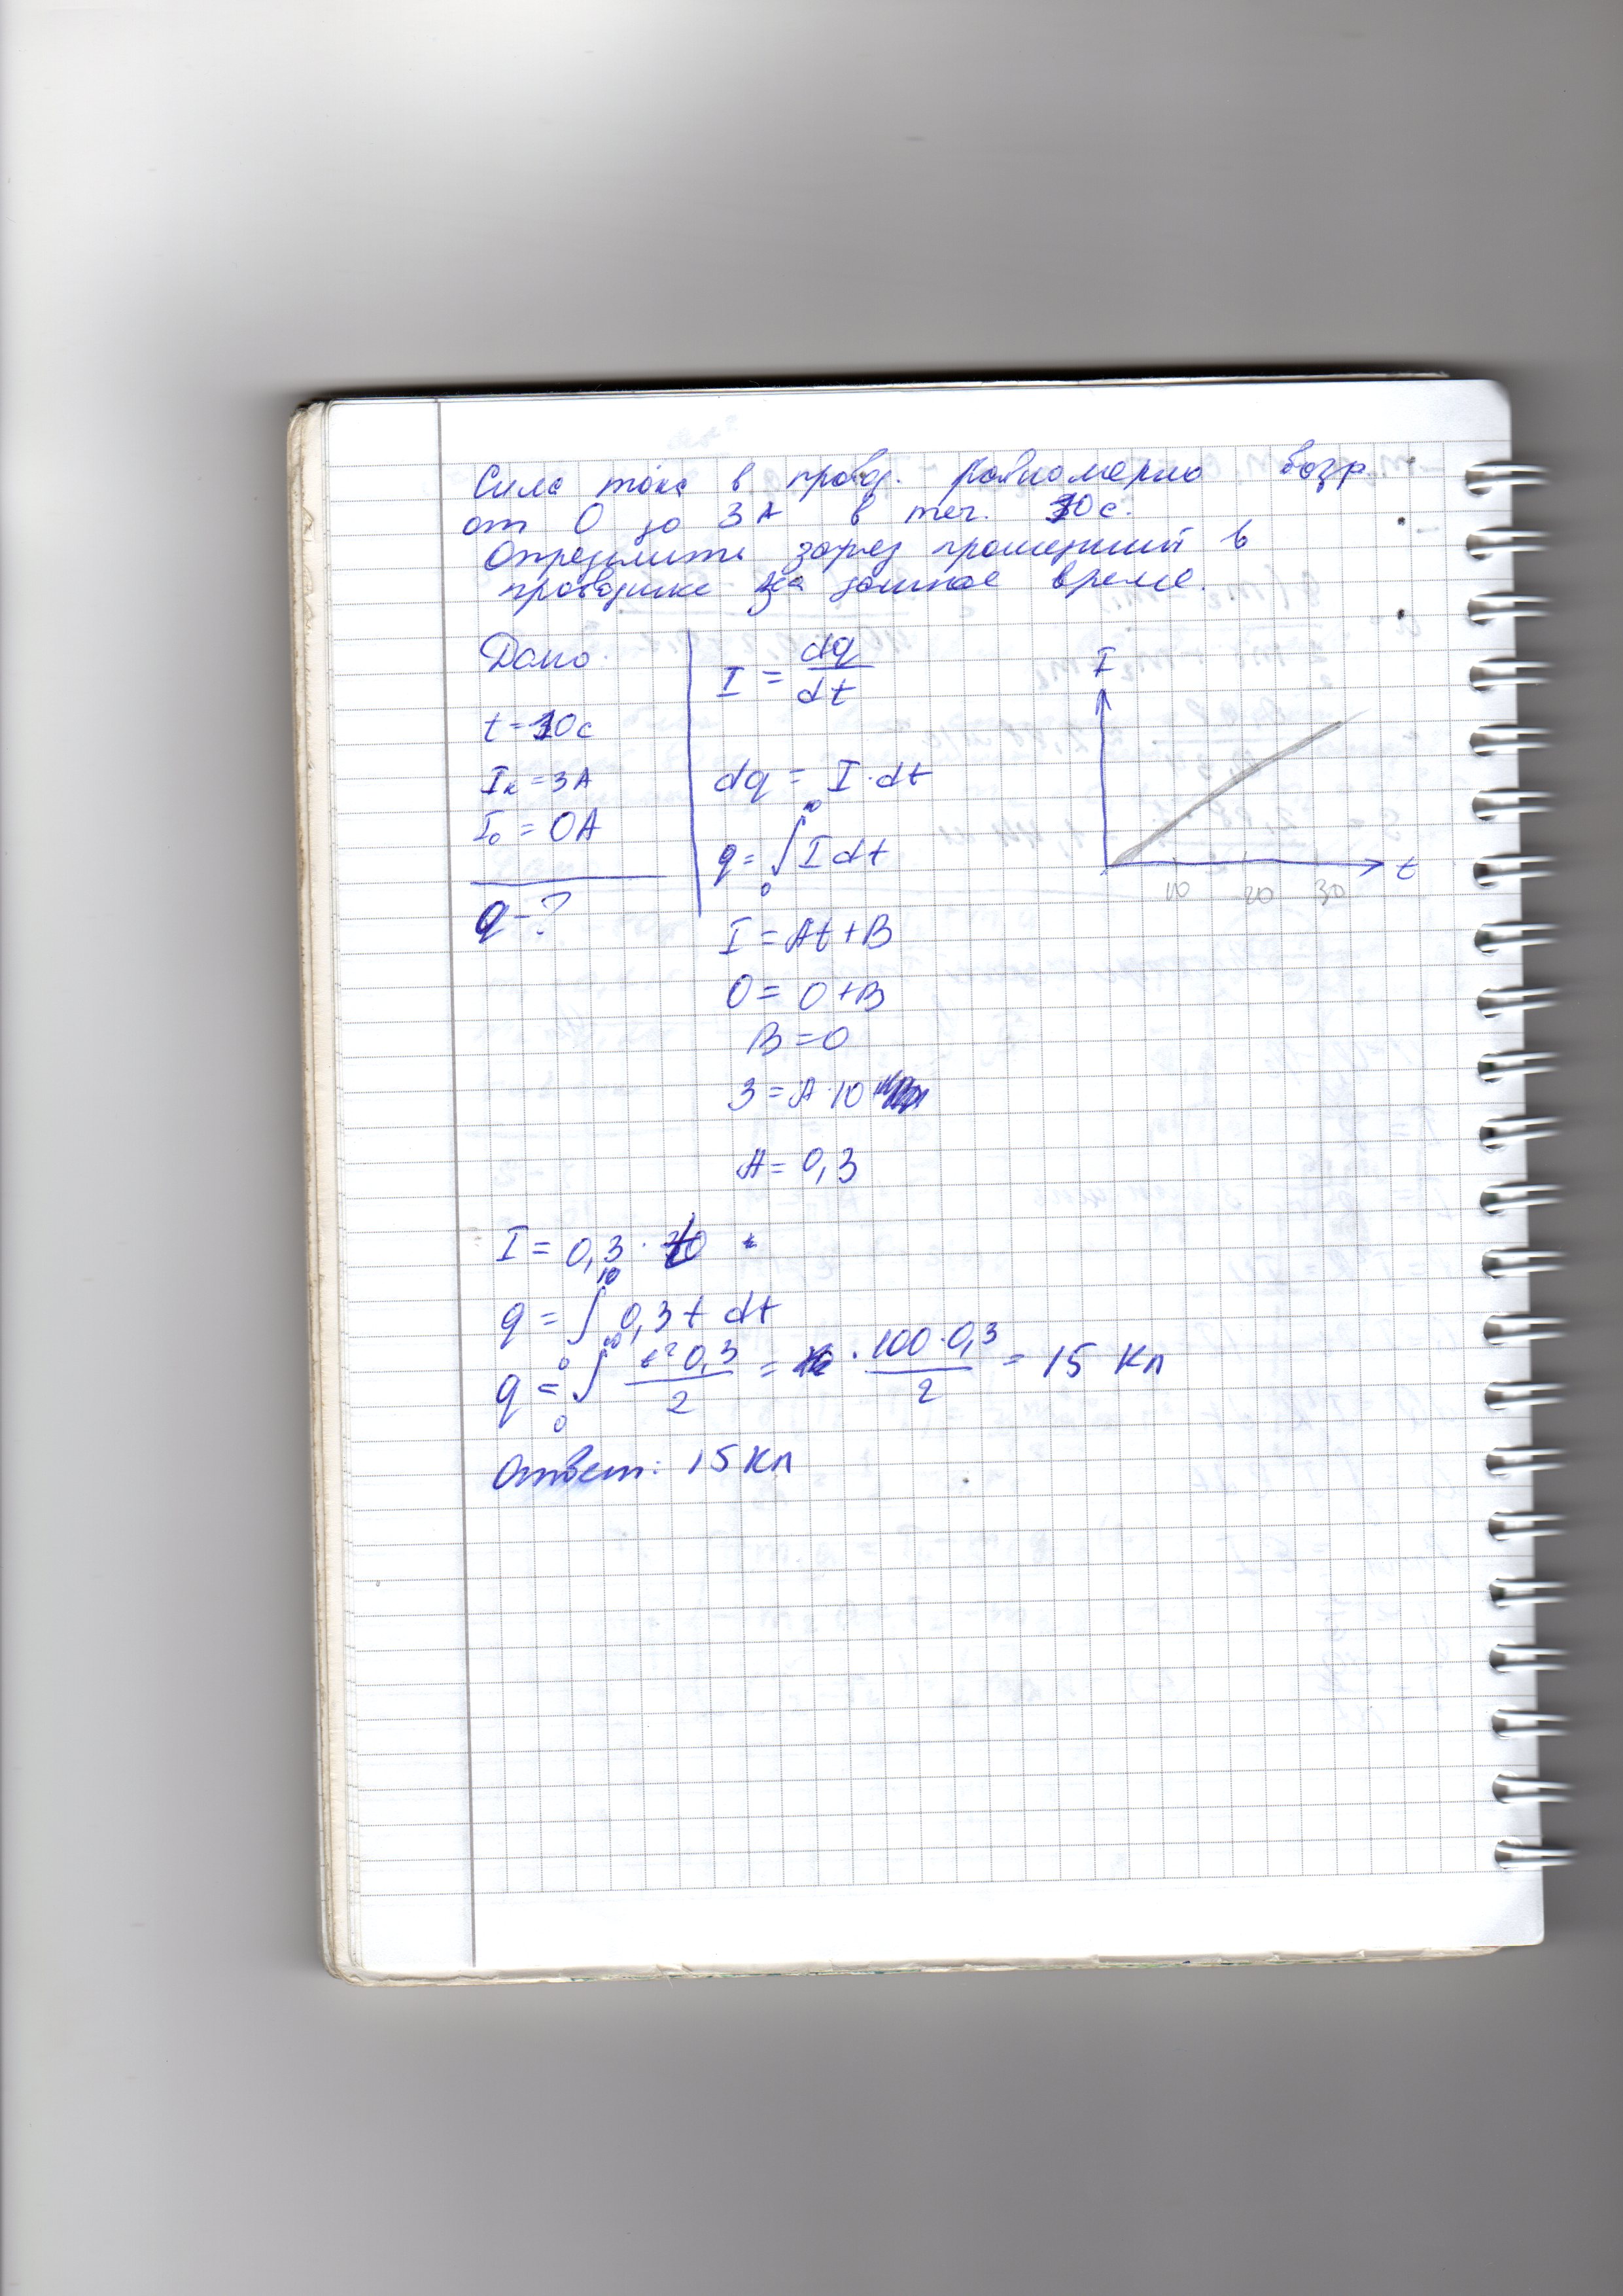 Сила тока в провод. равномерно возр.
от 0 до 3А в теч. 10с.
Определить заряд прошедший в
проводнике за данное время.
Дано.
t = 10с
Iк = 3А
I₀ = 0А
q - ?
I = dq/dt
dq = I·dt
q = ∫₀¹⁰ I dt
I
t
10 20 30
I = At + B
0 = 0 + B
B = 0
3 = A·10
A = 0,3
I = 0,3 · t
q = ∫₀¹⁰ 0,3 t dt
q = ∫₀¹⁰ t² 0,3 / 2 = · 100·0,3 / 2 = 15 Кл
Ответ: 15 Кл